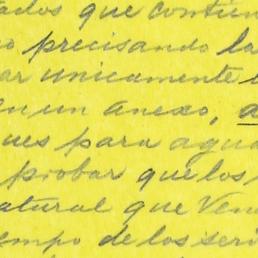 tados que contien
o precisando la
ar unicamente
en un anexo, a
ues para agua
probar que los
atural que Vene
empo de los seri